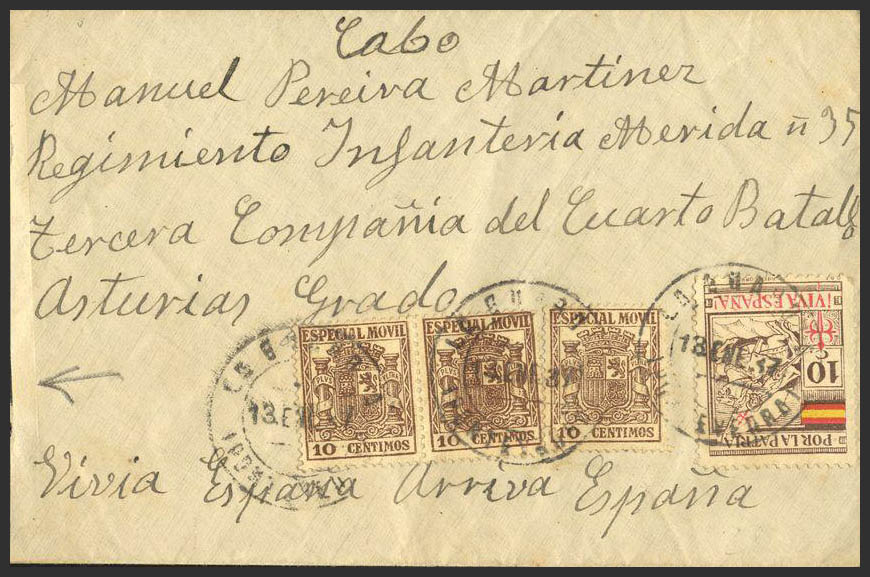 Cabo
Manuel Pereira Martinez
Regimiento Infanteria Merida ñ 35
tercera Compañia del Cuarto Batallo
Asturias Grado
ESPECIAL MOVIL
10 CENTIMOS
ESPECIAL MOVIL
10 CENTIMOS
ESPECIAL MOVIL
10 CENTIMOS
13 ENE. 37
¡VIVA ESPAÑA!
10
POR LA PATRIA
Vivia España Arriva España